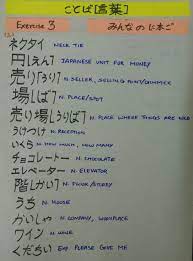 ことば[言葉]
Exercise 3 みんなの にほんご
ネクタイ NECK TIE
円[えん] JAPANESE UNIT FOR MONEY
売り[うり] N. SELLER, SELLING POINT/GIMMICK
場[ば] N. PLACE/SPOT
売り場[うりば] N. PLACE WHERE THINGS ARE SOLD
うけつけ N. RECEPTION
いくら N. HOW MUCH, HOW MANY
チョコレート N. CHOCOLATE
エレベーター N. ELEVATOR
階[かい] N. FLOOR/STOREY
うち N. HOUSE
かいしゃ N. COMPANY, WORKPLACE
ワイン N. WINE
ください EXP. PLEASE GIVE ME